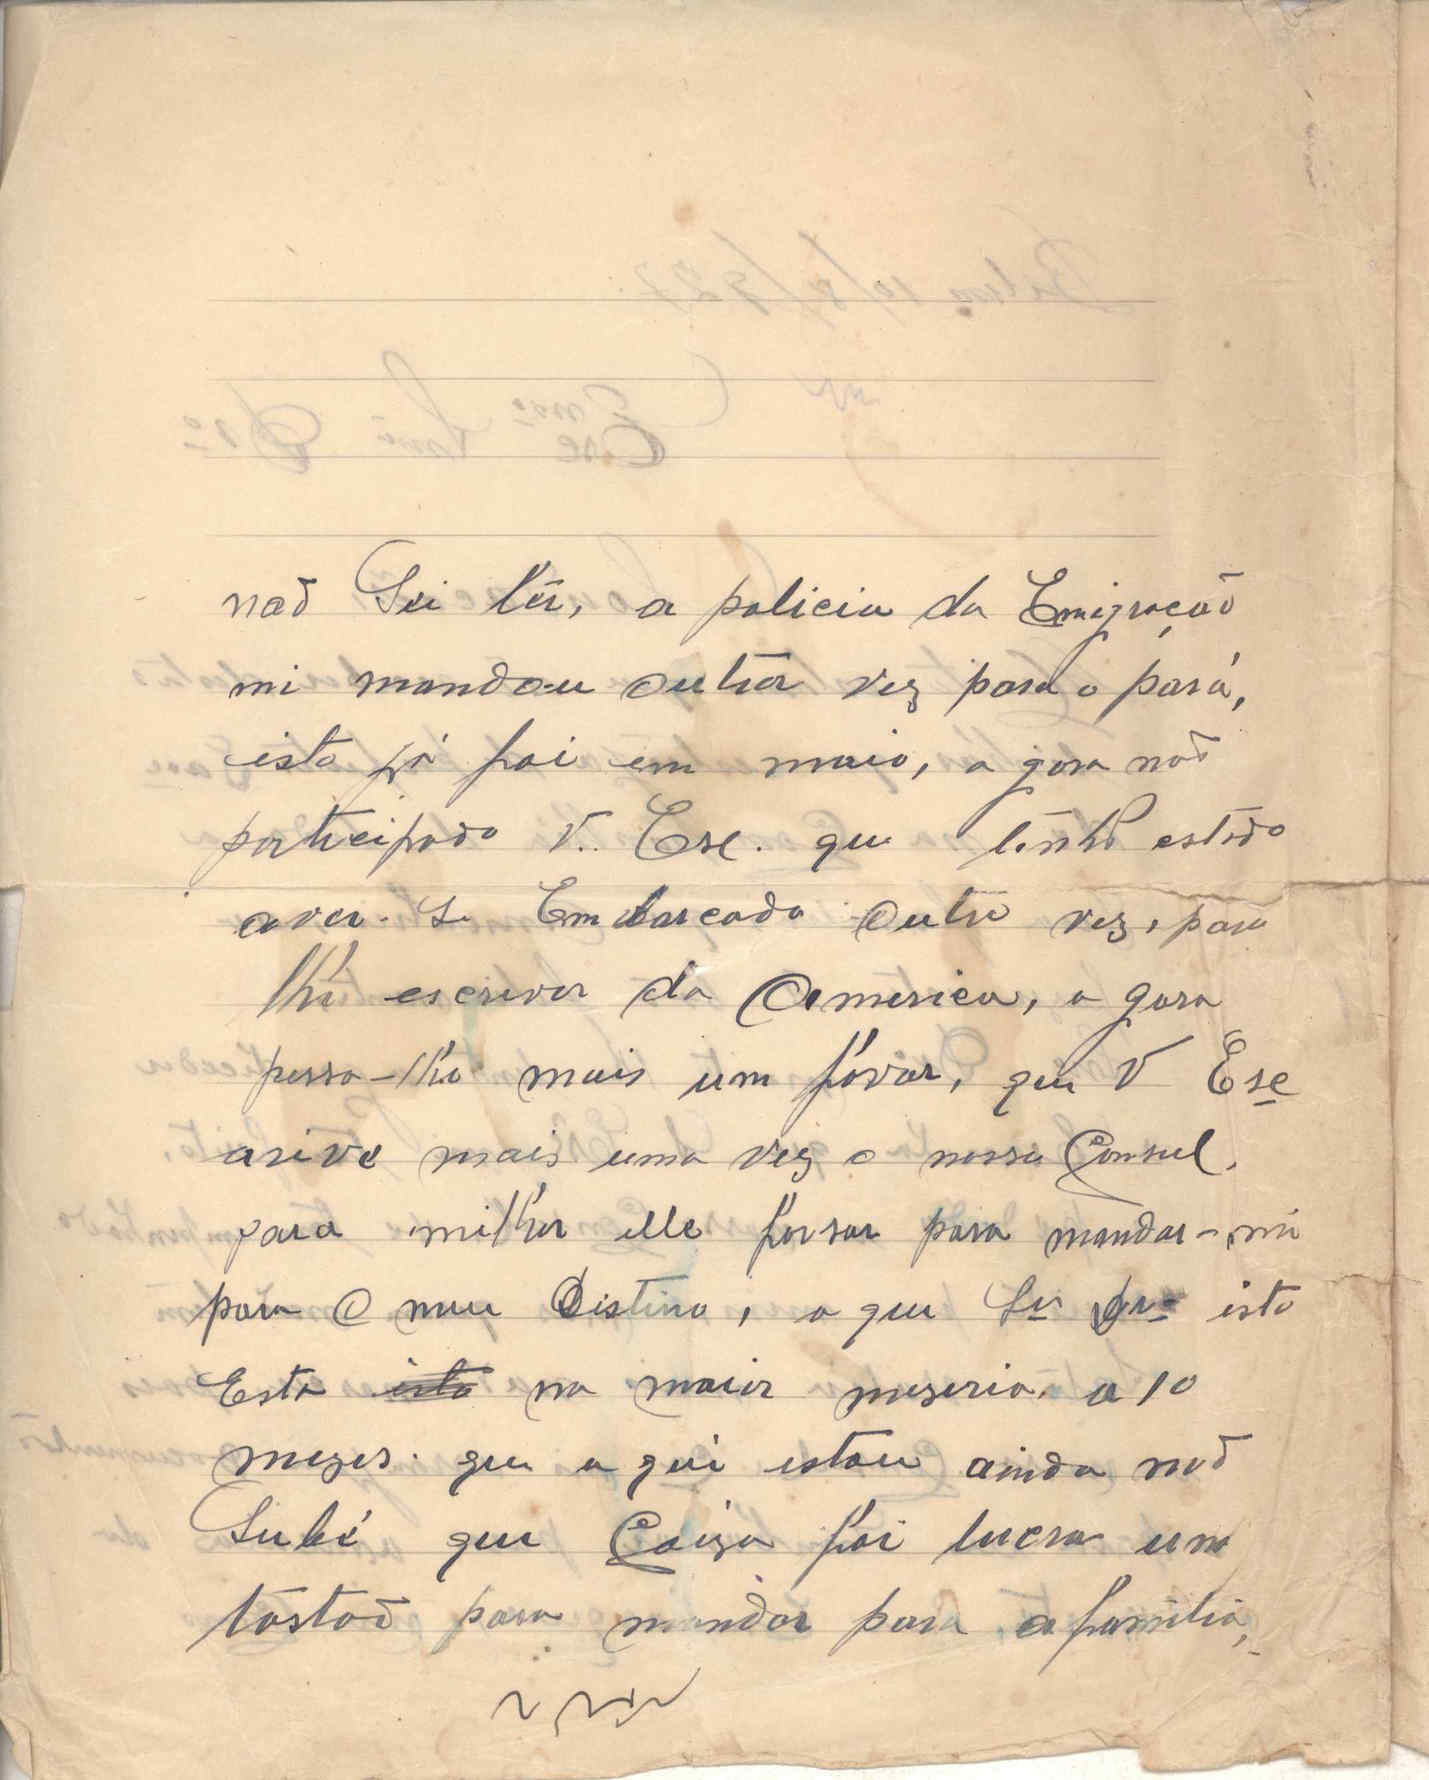 naõ Sei lêr, a policia da Emigração
mi mandou outra vez para o pará,
isto já foi em maio, a gora naõ
participado V. Exe. que tenho estado
aver. Se Embarcada outra vez, para
lhi escrever da America, a gora
pesso-lhi mais um favor, que V Exe
arive mais uma vez o nosso Consul,
para milhor elle forsar para mandar-mi
para o meu Distino, o que Snr Dro isto
Esta ista na maior miseria. a 10
mezes. que a qui estou ainda naõ
Subé que Coiza foi lucra um
tostaõ para mandar para a familia,